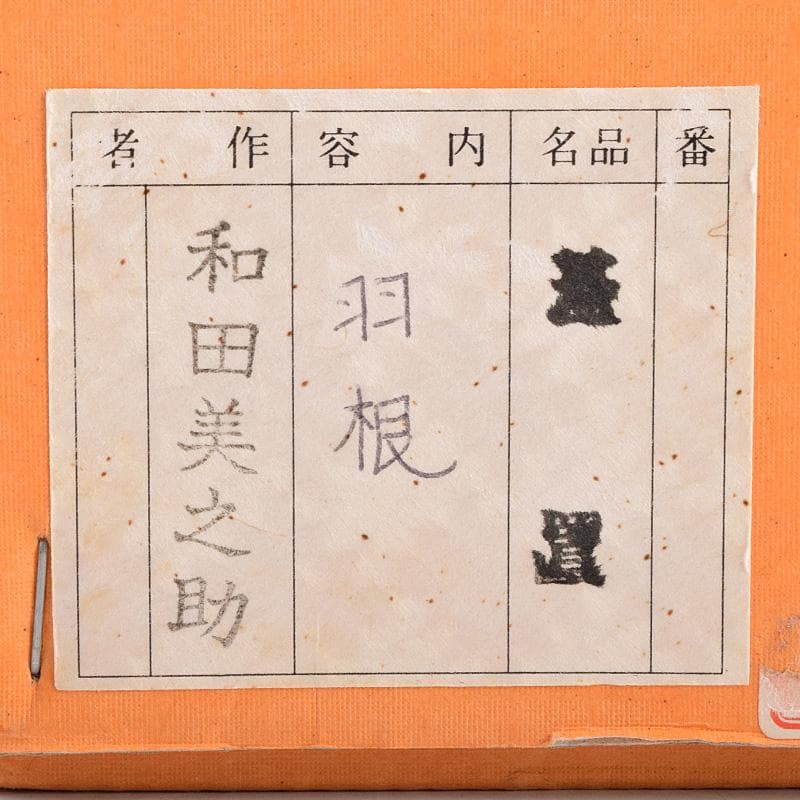 番
品名
内容
羽根
作者
和田美之助